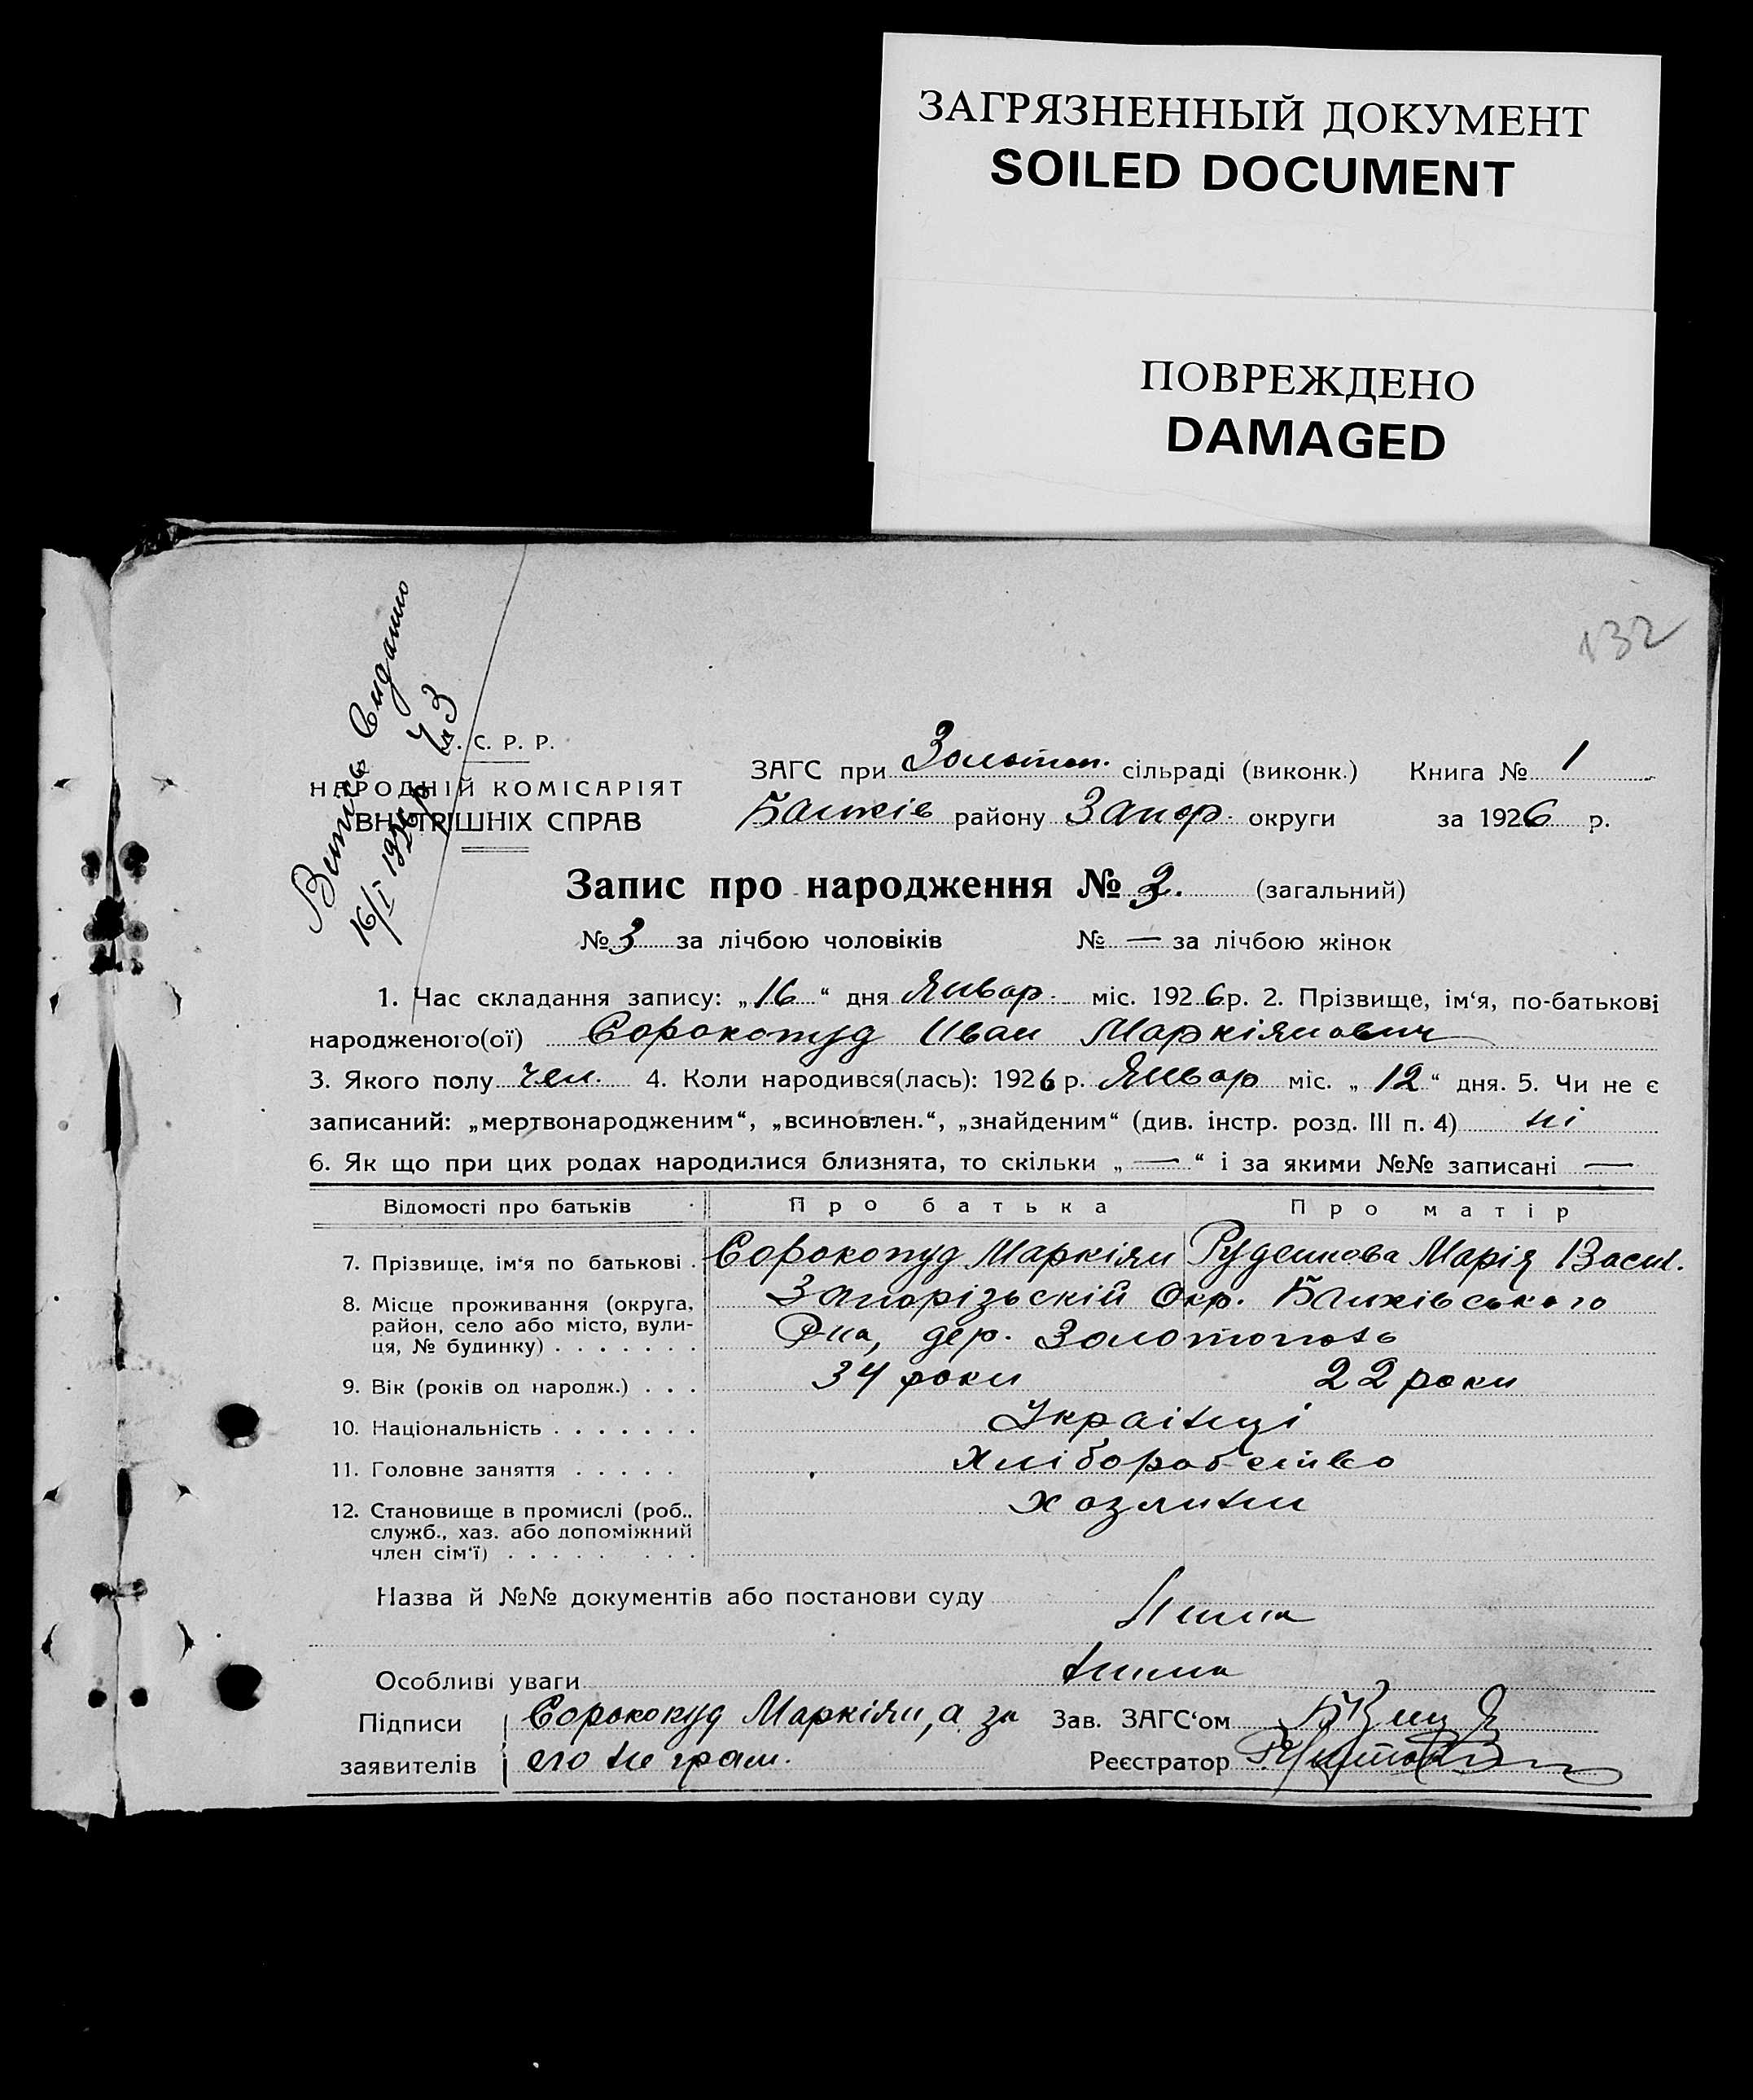 ЗАГРЯЗНЕННЫЙ ДОКУМЕНТ
SOILED DOCUMENT
ПОВРЕЖДЕНО
DAMAGED
132
Витяг видано
16/I 1926 р. № 3
. С. Р. Р.
НАРОДНІЙ КОМІСАРІЯТ
ВНУТРІШНІХ СПРАВ
ЗАГС при Золотоп. сільраді (виконк.) Книга № 1
району Запор. округи за 1926 р.
Запис про народження № 3. (загальний)
№ 3 за лічбою чоловіків № — за лічбою жінок
1. Час складання запису: „16“ дня Январ. міс. 1926 р. 2. Прізвище, ім‘я, по-батькові
народженого(ої) Сорокопуд Иван Маркіянович
3. Якого полу чел. 4. Коли народився(лась): 1926 р. Январ міс. „12“ дня. 5. Чи не є
записаний: „мертвонародженим“, „всиновлен.“, „знайденим“ (див. інстр. розд. III п. 4) ні
6. Як що при цих родах народилися близнята, то скільки „—“ і за якими №№ записані —
Відомості про батьків Про батька Про матір
7. Прізвище, ім‘я по батькові . Сорокопуд Маркіян Руденкова Марія Васил.
8. Місце проживання (округа, Запорізьскій Окр.
район, село або місто, вули- Р-на, дер. Золотополь
ця, № будинку) . . . . . . .
9. Вік (років од народж.) . . . 34 роки 22 роки
10. Національність . . . . . . . Українці
11. Головне заняття . . . . . хліборобство
12. Становище в промислі (роб.. хозяини
служб., хаз. або допоміжний
член сім‘ї) . . . . . . . .
Назва й №№ документів або постанови суду
Нима
Особливі уваги нима
Підписи Сорокопуд Маркіян, а за Зав. ЗАГС‘ом
заявителів его не грам. Реєстратор